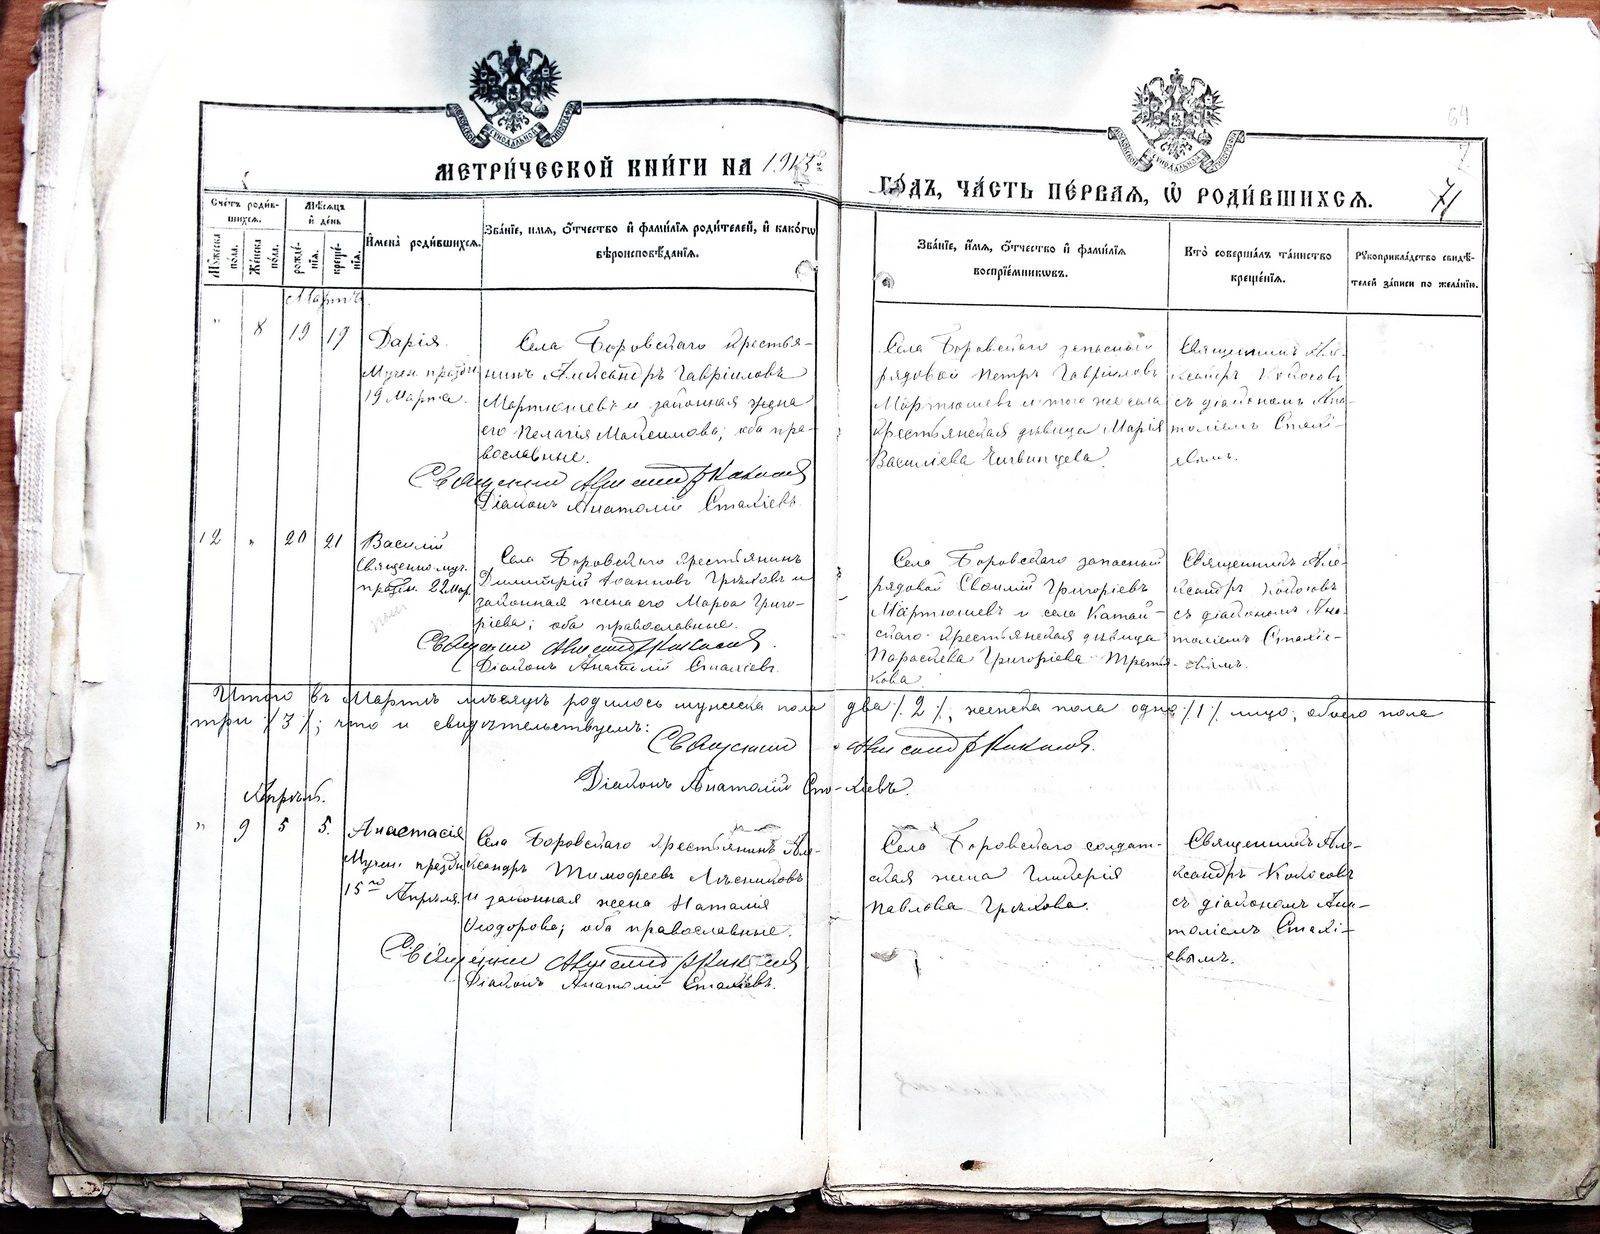 МЕТРИ́ЧЕСКОЙ КНИ́ГИ НА
ГО́ДЪ, ЧА́СТЬ ПЕ́РВАЯ, Ѡ҆ РОДИ́ВШИХСЯ.
64
71
Сче́тъ роди́вшихся.
Му́жеска по́ла.
Же́нска по́ла.
Мѣ́сяцъ и҆ де́нь
рожде́нїя.
креще́нїя.
И҆мена̀ роди́вшихся.
Зва́нїе, и҆́мя, ѻ҆́тчество и҆ фами́лїя роди́телей, и҆ како́гѡ
вѣроисповѣ́данїя.
Зва́нїе, и҆́мя, ѻ҆́тчество и҆ фами́лїя
воспрїе́мникѡвъ.
Кто̀ соверша́лъ та́инство
креще́нїя.
Рꙋкоприкла́дство свидѣ́-
телей за́писи по жела́нїю.
Мартъ.
" 8 19 19
Дарія.
Мучен. праздн.
19 Марта.
Села Боровскаго крестья-
нинъ Александръ Гавріиловъ
Мартюшевъ и законная жена
его Пелагія Максимова; оба пра-
вославные.
Священникъ Александръ Колосовъ
Діаконъ Анатолій Стахіевъ.
Села Боровскаго запасный
рядовой Петръ Гавріиловъ
Мартюшевъ и того же села
крестьянская дѣвица Марія
Василіева
Священникъ Але-
ксандръ Колосовъ
съ діакономъ Ана-
толіемъ Стахі-
евымъ.
12 " 20 21
Василій
Священномуч.
праздн. 22 Мар.
Села Боровскаго крестьянинъ
Димитрій Іоанновъ Грѣховъ и
законная жена его Марѳа Григо-
ріева; оба православные.
Священникъ Александръ Колосовъ
Діаконъ Анатолій Стахіевъ.
Села Боровскаго запасный
рядовой Григоріевъ
Мартюшевъ и села Катай-
скаго крестьянская дѣвица
Параскева Григоріева Третья-
кова
Священникъ Але-
ксандръ Колосовъ
съ діакономъ Ана-
толіемъ Стахіе-
вымъ.
Итого въ Мартѣ мѣсяцѣ родилось мужеска пола два /2/, женска пола одно /1/ лицо; обоего пола
три /3/; что и свидѣтельствуемъ:
Священникъ Александръ Колосовъ.
Діаконъ Анатолій Стахіевъ.
Апрѣль.
" 9 5 5.
Анастасія
Мучен. праздн.
15го Апрѣля
Села Боровскаго крестьянинъ Але-
ксандръ Тимоѳеевъ Лѣсниковъ
и законная жена Наталія
Ѳеодорова; оба православные.
Священникъ Александръ Колосовъ
Діаконъ Анатолій Стахіевъ.
Села Боровскаго солдат-
ская жена Гликерія
Павлова Грѣхова.
Священникъ Але-
ксандръ Колосовъ
съ діакономъ Ана-
толіемъ Стахі-
евымъ.